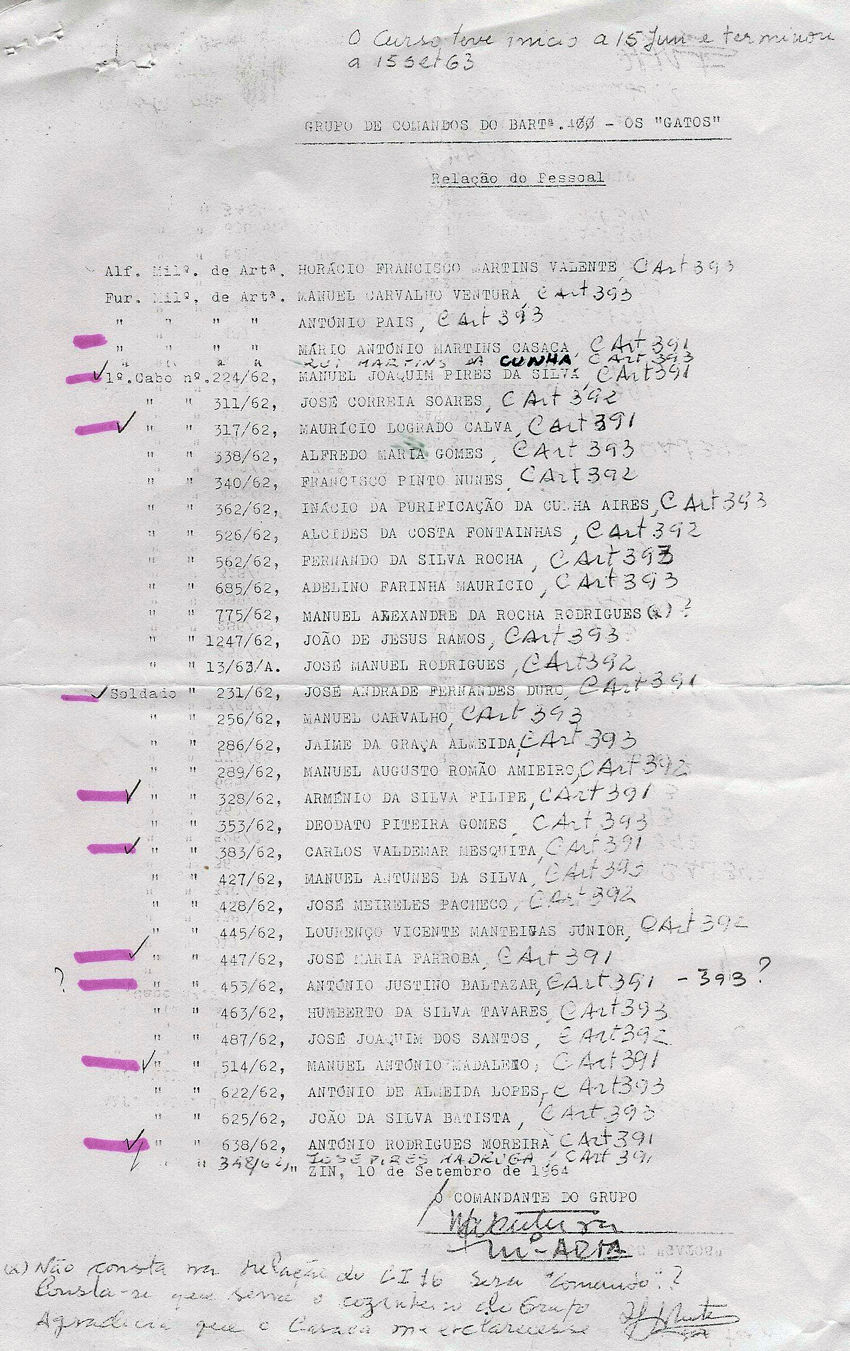 O Curso teve inicio a 15 Jun e terminou
a 15 Set 63
GRUPO DE COMANDOS DO BARTª.400 - OS "GATOS"
Relação do Pessoal
Alf. Milº. de Artª. HORÁCIO FRANCISCO MARTINS VALENTE, CArt 393
Fur. Milº. de Artª. MANUEL CARVALHO VENTURA, CArt 393
" " " " ANTÓNIO PAIS, CArt 393
" " " " MÁRIO ANTÓNIO MARTINS CASACA, CArt 391
" " " " RUI MARTINS DA CUNHA CArt 393
1º.Cabo nº.224/62, MANUEL JOAQUIM PIRES DA SILVA, CArt 391
" " 311/62, JOSÉ CORREIA SOARES, CArt 392
" " 317/62, MAURÍCIO LOGRADO CALVA, CArt 391
" " 338/62, ALFREDO MARIA GOMES, CArt 393
" " 340/62, FRANCISCO PINTO NUNES, CArt 392
" " 362/62, INÁCIO DA PURIFICAÇÃO DA CUNHA AIRES, CArt 393
" " 526/62, ALCIDES DA COSTA FONTAINHAS, CArt 392
" " 562/62, FERNANDO DA SILVA ROCHA, CArt 393
" " 685/62, ADELINO FARINHA MAURÍCIO, CArt 393
" " 775/62, MANUEL ALEXANDRE DA ROCHA RODRIGUES (a) ?
" " 1247/62, JOÃO DE JESUS RAMOS, CArt 393
" " 13/63/A. JOSÉ MANUEL RODRIGUES, CArt 392
Soldado " 231/62, JOSÉ ANDRADE FERNANDES DURO, CArt 391
" " 256/62, MANUEL CARVALHO, CArt 393
" " 286/62, JAIME DA GRAÇA ALMEIDA, CArt 393
" " 289/62, MANUEL AUGUSTO ROMÃO AMIEIRO, CArt 392
" " 328/62, ARMÉNIO DA SILVA FILIPE, CArt 391
" " 353/62, DEODATO PITEIRA GOMES, CArt 393
" " 383/62, CARLOS VALDEMAR MESQUITA, CArt 391
" " 427/62, MANUEL ANTUNES DA SILVA, CArt 393
" " 428/62, JOSÉ MEIRELES PACHECO, CArt 392
" " 445/62, LOURENÇO VICENTE MANTEIGAS JÚNIOR, CArt 392
" " 447/62, JOSÉ MARIA FARROBA, CArt 391
? " " 453/62, ANTÓNIO JUSTINO BALTAZAR, CArt 391 - 393?
" " 463/62, HUMBERTO DA SILVA TAVARES, CArt 393
" " 487/62, JOSÉ JOAQUIM DOS SANTOS, CArt 392
" " 514/62, MANUEL ANTÓNIO MADALENO, CArt 391
" " 622/62, ANTÓNIO DE ALMEIDA LOPES, CArt 393
" " 625/62, JOÃO DA SILVA BATISTA, CArt 393
" " 638/62, ANTÓNIO RODRIGUES MOREIRA CArt 391
" " 348/62, JOSÉ PIRES MADRUGA, CArt 391
ZIN, 10 de Setembro de 1964
O COMANDANTE DO GRUPO
(a) Não consta na relação do CI 16 Será "Comando"?
Consta-se que seria o cozinheiro do Grupo
Agradecia que o Casaca me esclarecesse